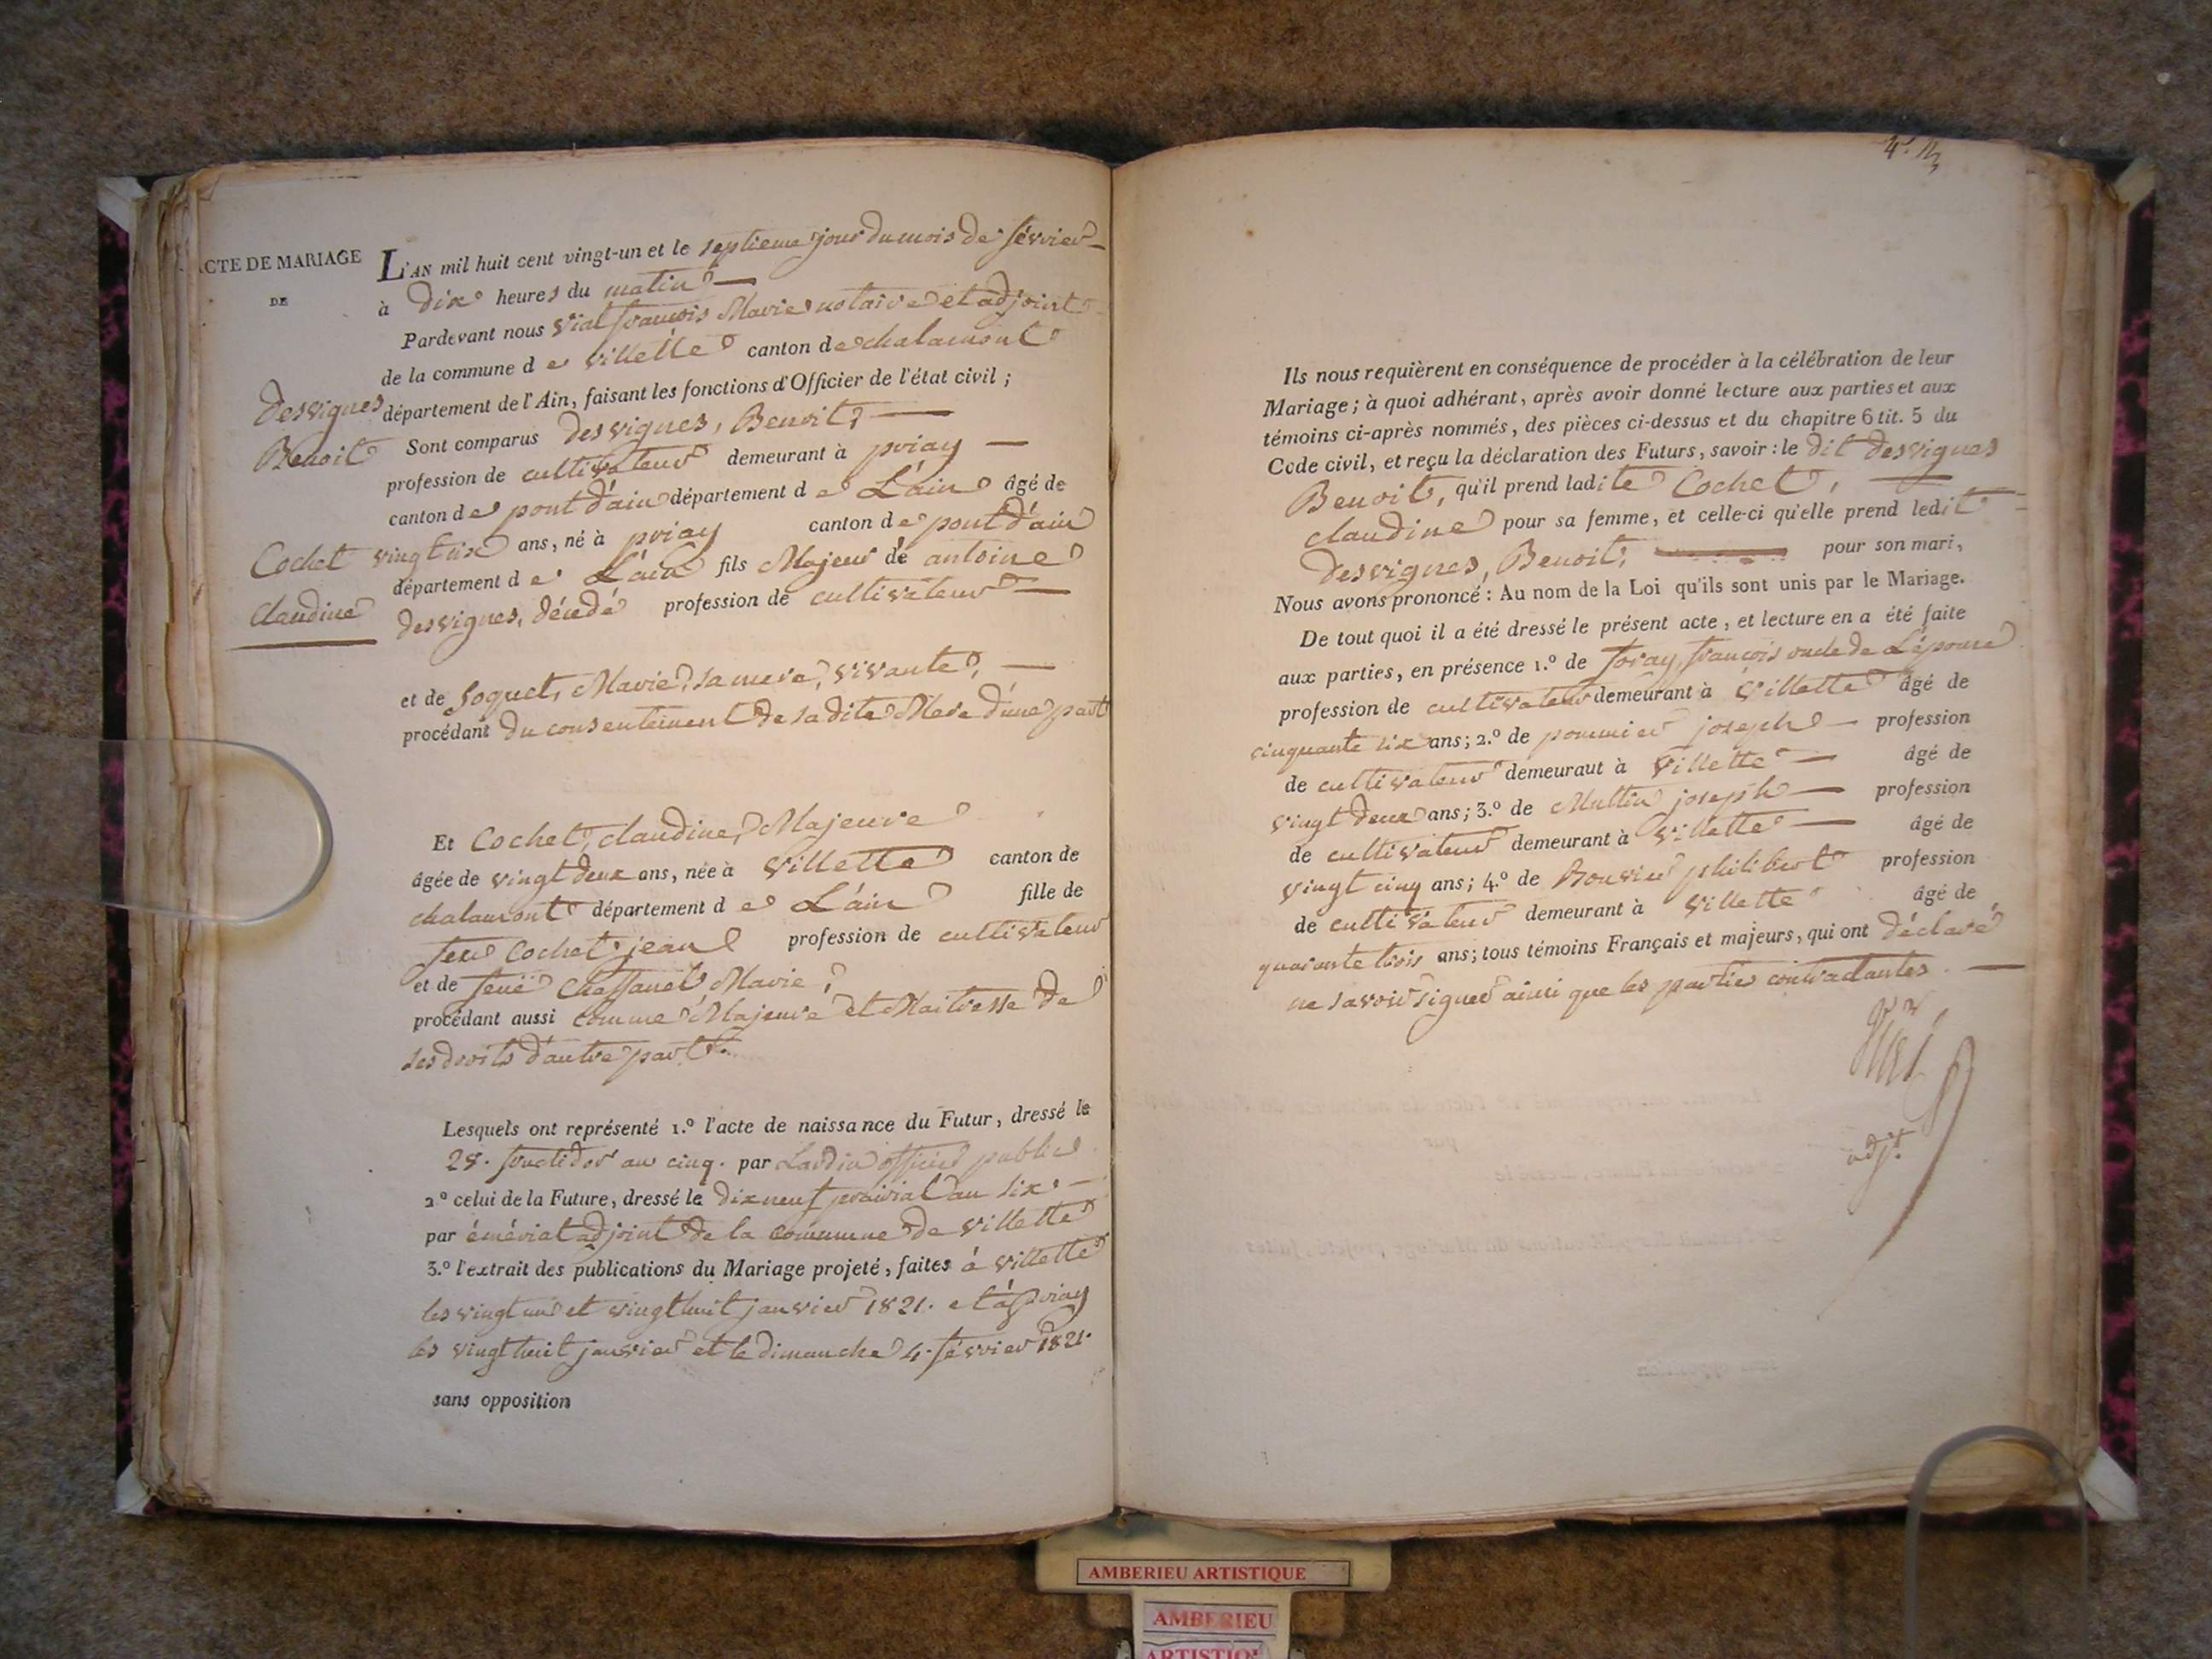 ACTE DE MARIAGE
DE
Desvignes
Benoit
Cochet
Claudine
L'AN mil huit cent vingt-un et le septieme jour du mois de février
à dix heures du matin
Pardevant nous Vial françois Marie notaire et adjoint
de la commune de Villette canton de chalamont
département de l'Ain, faisant les fonctions d'Officier de l'état civil ;
Sont comparus Desvignes, Benoit,
profession de cultivateur demeurant à priay
canton de pont d'ain département de L'ain âgé de
vingt trois ans, né à priay canton de pont d'ain
département de L'ain fils Majeur de antoine
desvignes, décédé profession de cultivateur
et de Marie, sa mere, vivante,
procédant du consentement de sa dite Mere d'une part
Et Cochet, claudine, Majeure
âgée de vingt deux ans, née à Villette canton de
chalamont département de L'ain fille de
feu Cochet jean profession de cultivateur
et de feuë Chassanet Marie,
procédant aussi comme Majeure et Maitresse de
ses droits d'autre part.
Lesquels ont représenté 1.º l'acte de naissance du Futur, dressé le
28. fructidor an cinq. par Lardin officier public
2.º celui de la Future, dressé le dix neuf prairial an six.
par éméviat adjoint de la commune de Villette
3.º l'extrait des publications du Mariage projeté, faites à Villette
les vingt un et vingt huit janvier 1821. et à priay
les vingt huit janvier et le dimanche 4. février 1821.
sans opposition
Ils nous requièrent en conséquence de procéder à la célébration de leur
Mariage ; à quoi adhérant, après avoir donné lecture aux parties et aux
témoins ci-après nommés, des pièces ci-dessus et du chapitre 6 tit. 5 du
Code civil, et reçu la déclaration des Futurs, savoir : le dit Desvignes
Benoit, qu'il prend ladite Cochet,
claudine pour sa femme, et celle-ci qu'elle prend ledit
Desvignes, Benoit, pour son mari,
Nous avons prononcé : Au nom de la Loi qu'ils sont unis par le Mariage.
De tout quoi il a été dressé le présent acte, et lecture en a été faite
aux parties, en présence 1.º de foray, françois oncle de L'épouse
profession de cultivateur demeurant à Villette âgé de
cinquante six ans ; 2.º de pommier joseph profession
de cultivateur demeuraut à Villette âgé de
vingt deux ans ; 3.º de Multin joseph profession
de cultivateur demeurant à Villette âgé de
vingt cinq ans ; 4.º de Bouvier philibert profession
de cultivateur demeurant à Villette âgé de
quarante trois ans ; tous témoins Français et majeurs, qui ont déclaré
ne savoir signer ainsi que les parties contractantes.
Vial
adj.t
AMBERIEU ARTISTIQUE
AMBERIEU
ARTISTIQUE